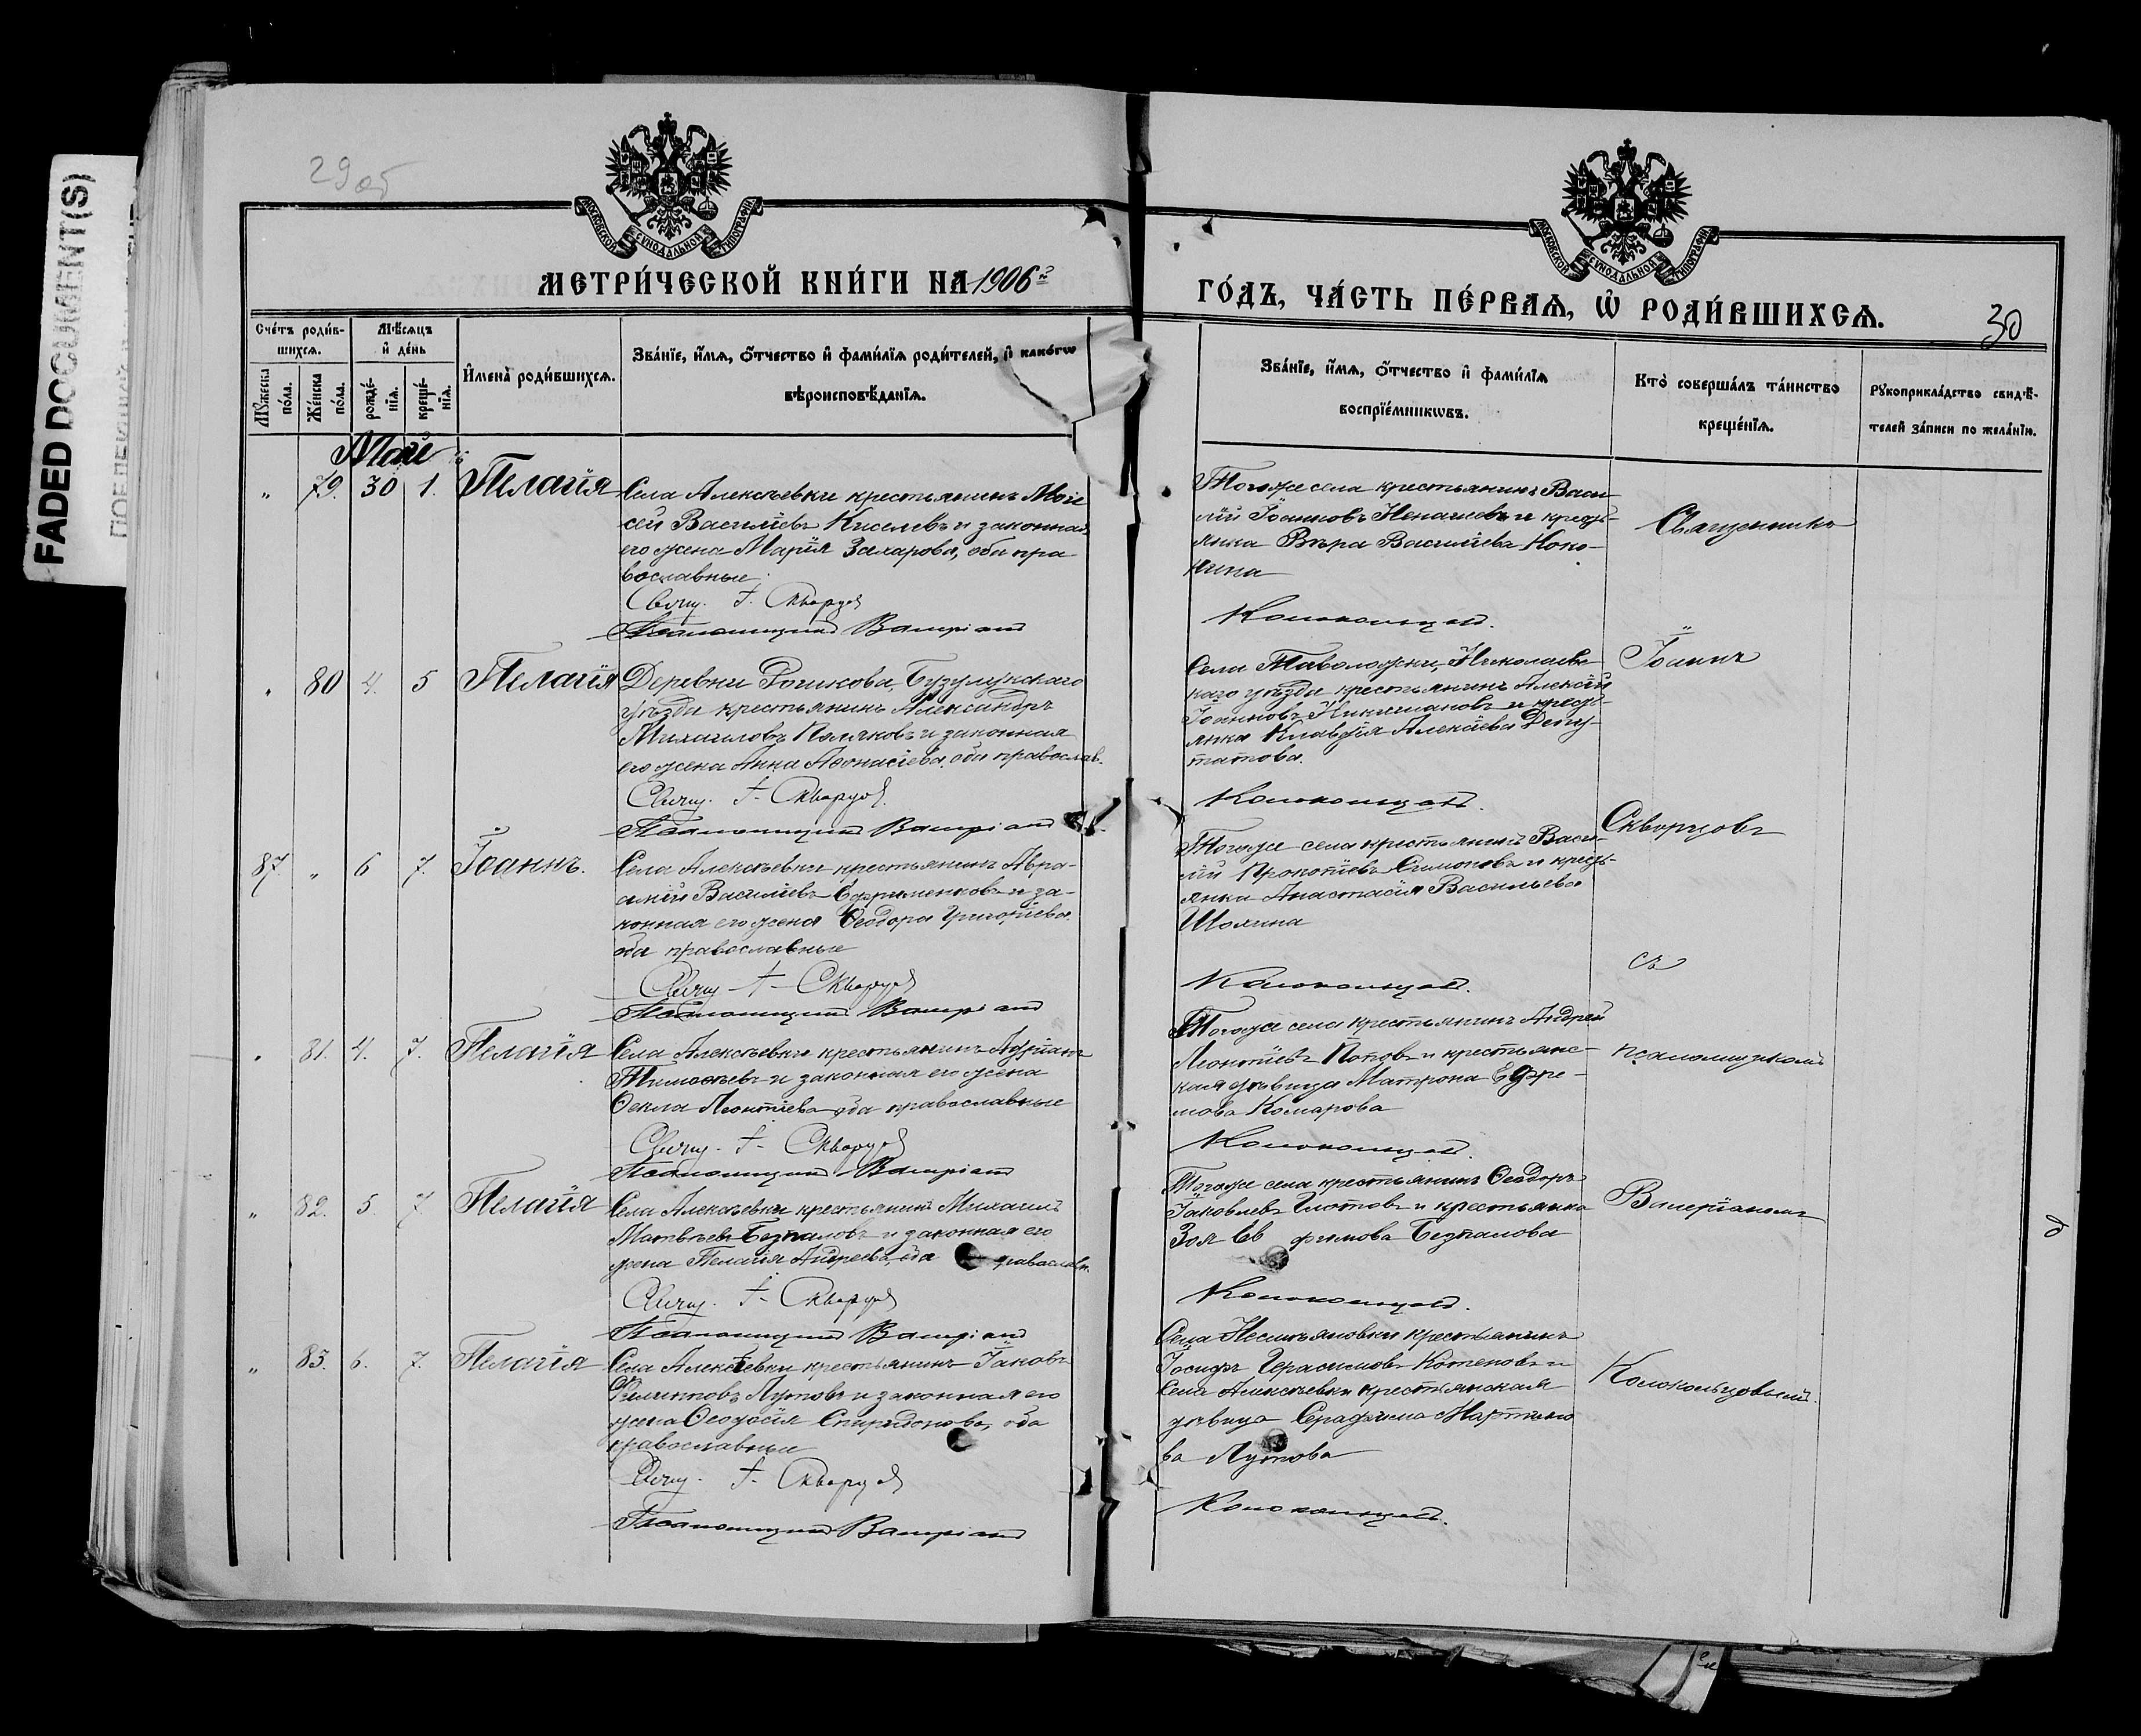 29 об
FADED DOCUMENT(S)
МОСКОВСКОЙ СѴНОДАЛЬНОЙ ТИПОГРАФІИ
МОСКОВСКОЙ СѴНОДАЛЬНОЙ ТИПОГРАФІИ
МЕТРИ́ЧЕСКОЙ КНИ́ГИ НА 1906 г
ГО́ДЪ, ЧА́СТЬ ПЕ́РВАѦ, Ѡ҆ РОДИ́ВШИХСѦ.
30
Сче́тъ роди́в-
шихсѧ.
Мꙋжеска по́ла.
Же́нска по́ла.
Мѣ́сѧцъ
и҆ де́нь
рожде́-нїѧ.
креще́-нїѧ.
И҆мена̀ роди́вшихсѧ.
Зва́нїе, и҆́мѧ, о҆́тчество и҆ фами́лїѧ роди́телей, и҆ како́гѡ
вѣроисповѣ́данїѧ.
Зва́нїе, и҆́мѧ, о҆́тчество и҆ фами́лїѧ
воспрїе́мникѡвъ.
Кто̀ соверша́лъ та́инство
креще́нїѧ.
Рꙋкоприкла́дство свидѣ́-
телей за́писи по жела́нїю.
Май
" 79. 30 1. Пелагія
Села Алексѣевки крестьянинъ Мои
сей Василіевъ Киселевъ и законная
его жена Марія Захарова, оба пра
вославные
Свящ. І. Скворцов
Псаломщикъ Валеріанъ
Тогоже села крестьянинъ Васи
лій Іоанновъ Ненашевъ и кресть-
янка Вѣра Василіева Коко-
кина
Колокольцовъ.
Священникъ
" 80 4. 5 Пелагія
Деревни Бузулукскаго
уѣзда крестьянинъ Александръ
Михаиловъ Поляковъ и законная
его жена Анна Аѳонасіева, оба православ.
Свящ. І. Скворцов.
Псаломщикъ Валеріанъ
Села Таволожки, Николаевс
каго уѣзда крестьянинъ Алексій
Іоанновъ и кресть-
янка Клавдія Алексіева Депу-
татова.
Колокольцовъ.
Іоаннъ
Скворцовъ
87 " 6 7. Іоаннъ.
Села Алексѣевки крестьянинъ Авра-
амій Василіевъ Ефрименковъ и за-
конная его жена Ѳеодора Григоріева.
оба православные
Свящ. І. Скворцов
Псаломщикъ Валеріанъ
Тогоже села крестьянинъ Васи-
лій Прокопіевъ Симоновъ и кресть-
янка Анастасія Васильева
Шохина
Колокольцовъ.
съ
" 81. 4. 7. Пелагія
Села Алексѣевки крестьянинъ Адріанъ
и законная его жена
Ѳекла Леонтіева оба православные
Свящ. І. Скворцов
Псаломщикъ Валеріанъ
Тогоже села крестьянинъ Андрей
Леонтіевъ Поповъ и крестьянс-
кая дѣвица Матрона Ефре-
мова Комарова
Колокольцовъ.
псаломщикомъ
" 82. 5. 7. Пелагія
Села Алексѣевки крестьянинъ Михаилъ
Матвѣевъ Безпаловъ и законная его
жена Пелагія Андреева, оба православн.
Свящ. І. Скворцов
Псаломщикъ Валеріанъ
Тогоже села крестьянинъ Ѳеодоръ
Іаковлевъ Глотовъ и крестьянка
Зоя Ев фимова Безпалова
Колокольцовъ.
Валеріаномъ
" 83. 6. 7. Пелагія
Села Алексѣевки крестьянинъ Іаковъ
Филипповъ Лутовъ и законная его
жена Ѳеодосія Спиридонова, оба
православные
Свящ. І. Скворцов
Псаломщикъ Валеріанъ
Села Несмѣяновки крестьянинъ
Іосифъ Герасимовъ Котеновъ и
Села Алексѣевки крестьянская
дѣвица Серафима Мартино
ва Лутова
Колокольцовъ.
Колокольцовымъ.